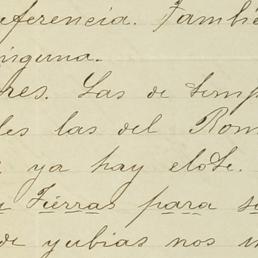 eferencia. Tambie
inguna.
res. Las de temp
les las del Rom
ya hay elote.
Tierras para s
de yubias nos